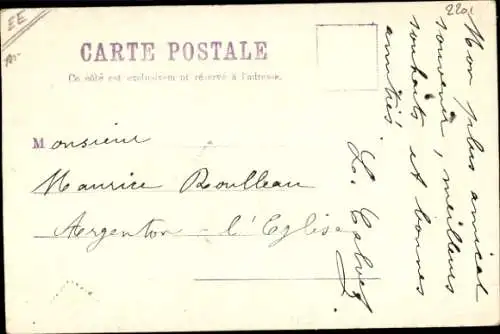 EE
220,
CARTE POSTALE
Ce côté est exclusivement réservé à l'adresse.
Monsieur
Maurice Roulleau
Argenton - l'Eglise
Mon plus amical
souvenir, meilleurs
souhaits et bonnes
amitiés.
L. Calvet